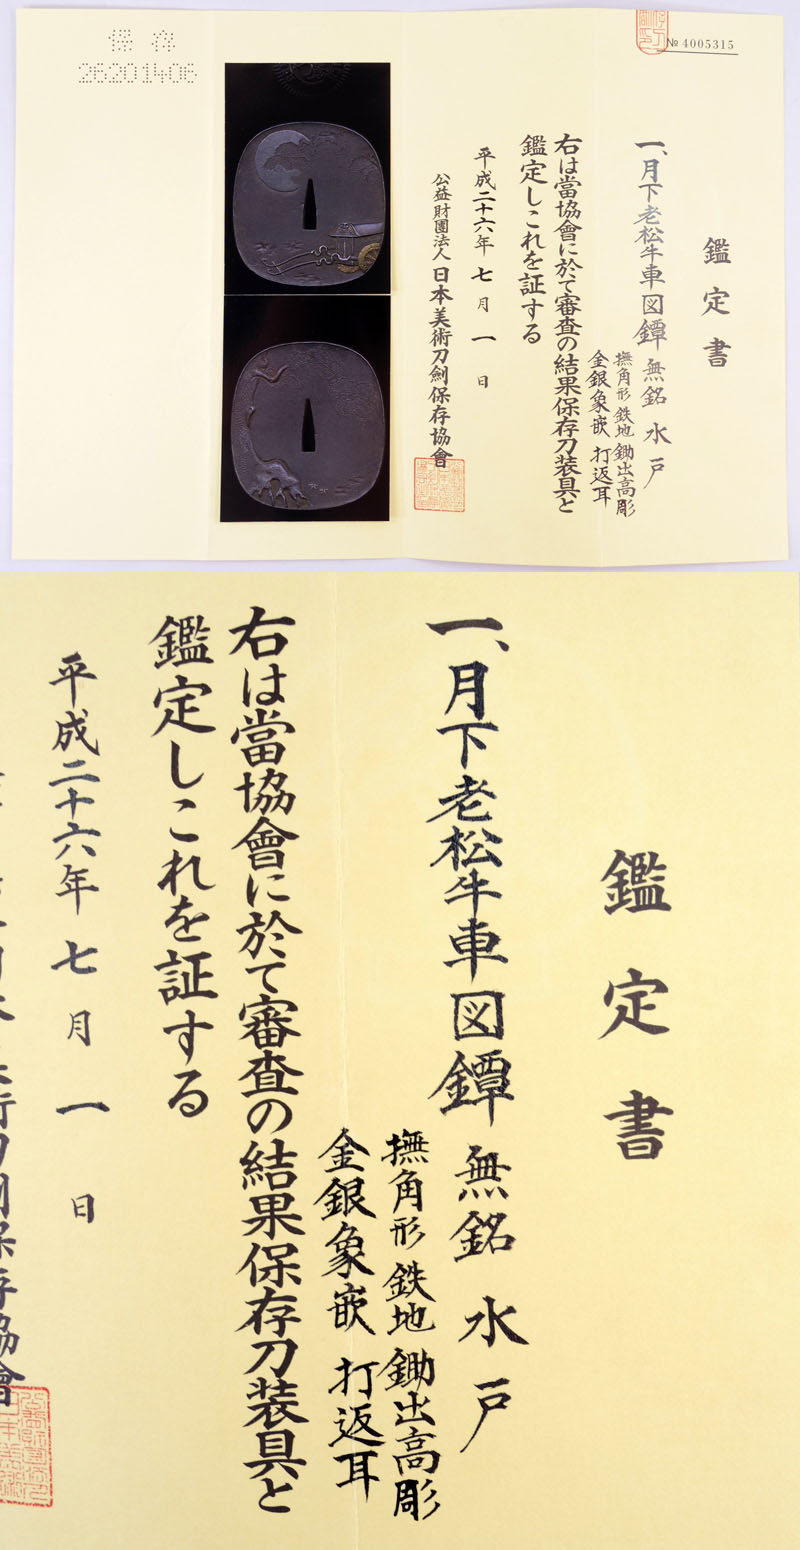 保存
26201406
№ 4005315
鑑定書
一、月下老松牛車図鐔 無銘 水戸
撫角形 鉄地 鋤出高彫
金銀象嵌 打返耳
右は當協會に於て審査の結果保存刀装具と
鑑定しこれを証する
平成二十六年 七月 一日
公益財團法人 日本美術刀劍保存協會
鑑定書
一、月下老松牛車図鐔 無銘 水戸
撫角形 鉄地 鋤出高彫
金銀象嵌 打返耳
右は當協會に於て審査の結果保存刀装具と
鑑定しこれを証する
平成二十六年 七月 一日